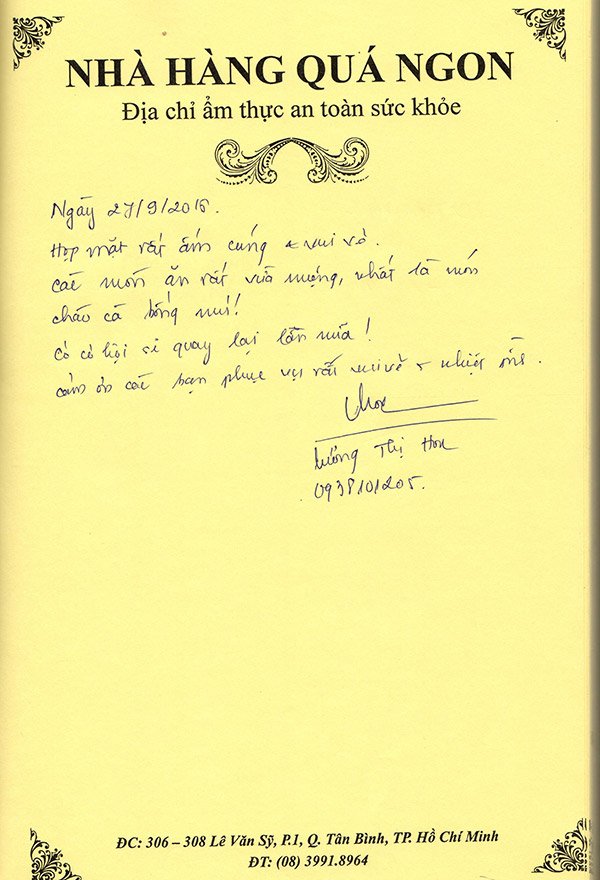 NHÀ HÀNG QUÁ NGON
Địa chỉ ẩm thực an toàn sức khỏe
Ngày 27/9/2015.
Họp mặt rất ấm cúng & vui vẻ.
Các món ăn rất vừa miệng, nhất là món
cháo cá bống mú!
Có cơ hội sẽ quay lại lần nữa!
Cảm ơn các bạn phục vụ rất vui vẻ & nhiệt tình.
Thị Hoa
0938101205.
ĐC: 306 – 308 Lê Văn Sỹ, P.1, Q. Tân Bình, TP. Hồ Chí Minh
ĐT: (08) 3991.8964